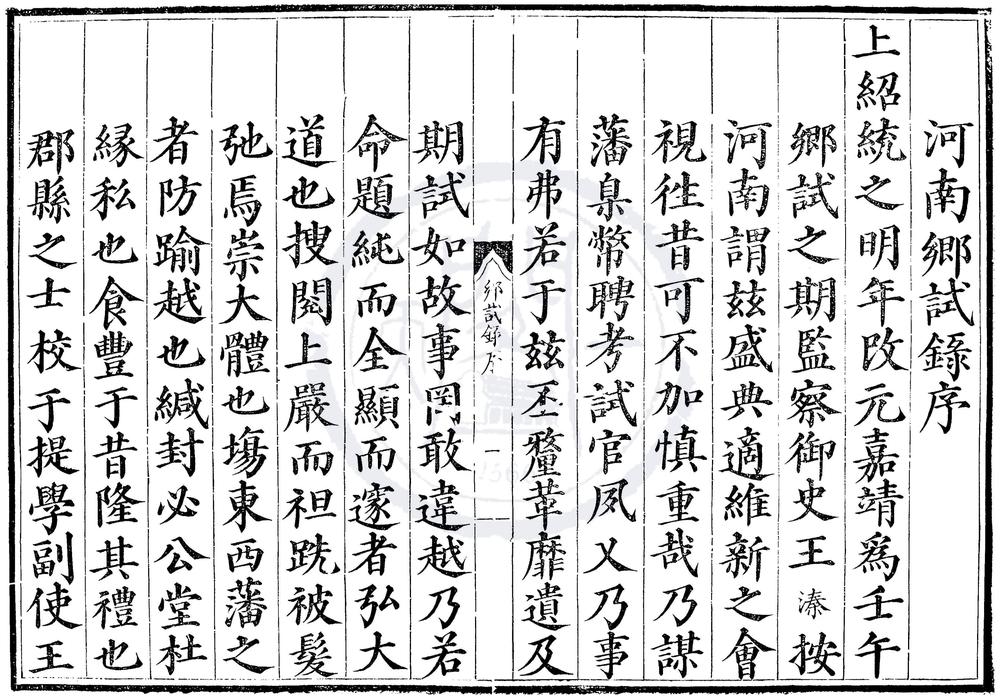 河南鄉試錄序
上紹統之明年改元嘉靖爲壬午
鄉試之期監察御史王溱按
河南謂茲盛典適維新之會
視徃昔可不加慎重哉乃謀
藩臬幣聘考試官夙乂乃事
有弗若于茲丕釐革靡遺及
鄉試錄序
一
期試如故事罔敢違越乃若
命題純而全顯而邃者弘大
道也搜閱上嚴而袒跣被髮
弛焉崇大體也塲東西藩之
者防踰越也緘封必公堂杜
縁私也食豐于昔隆其禮也
郡縣之士校于提學副使王